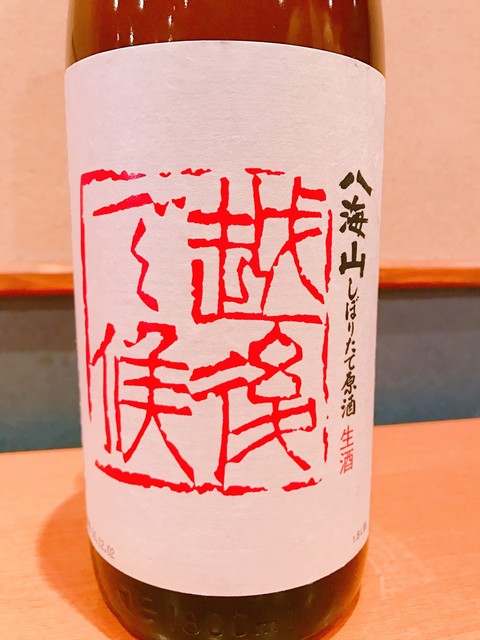 八海山しぼりたて原酒
生酒
越後
で候